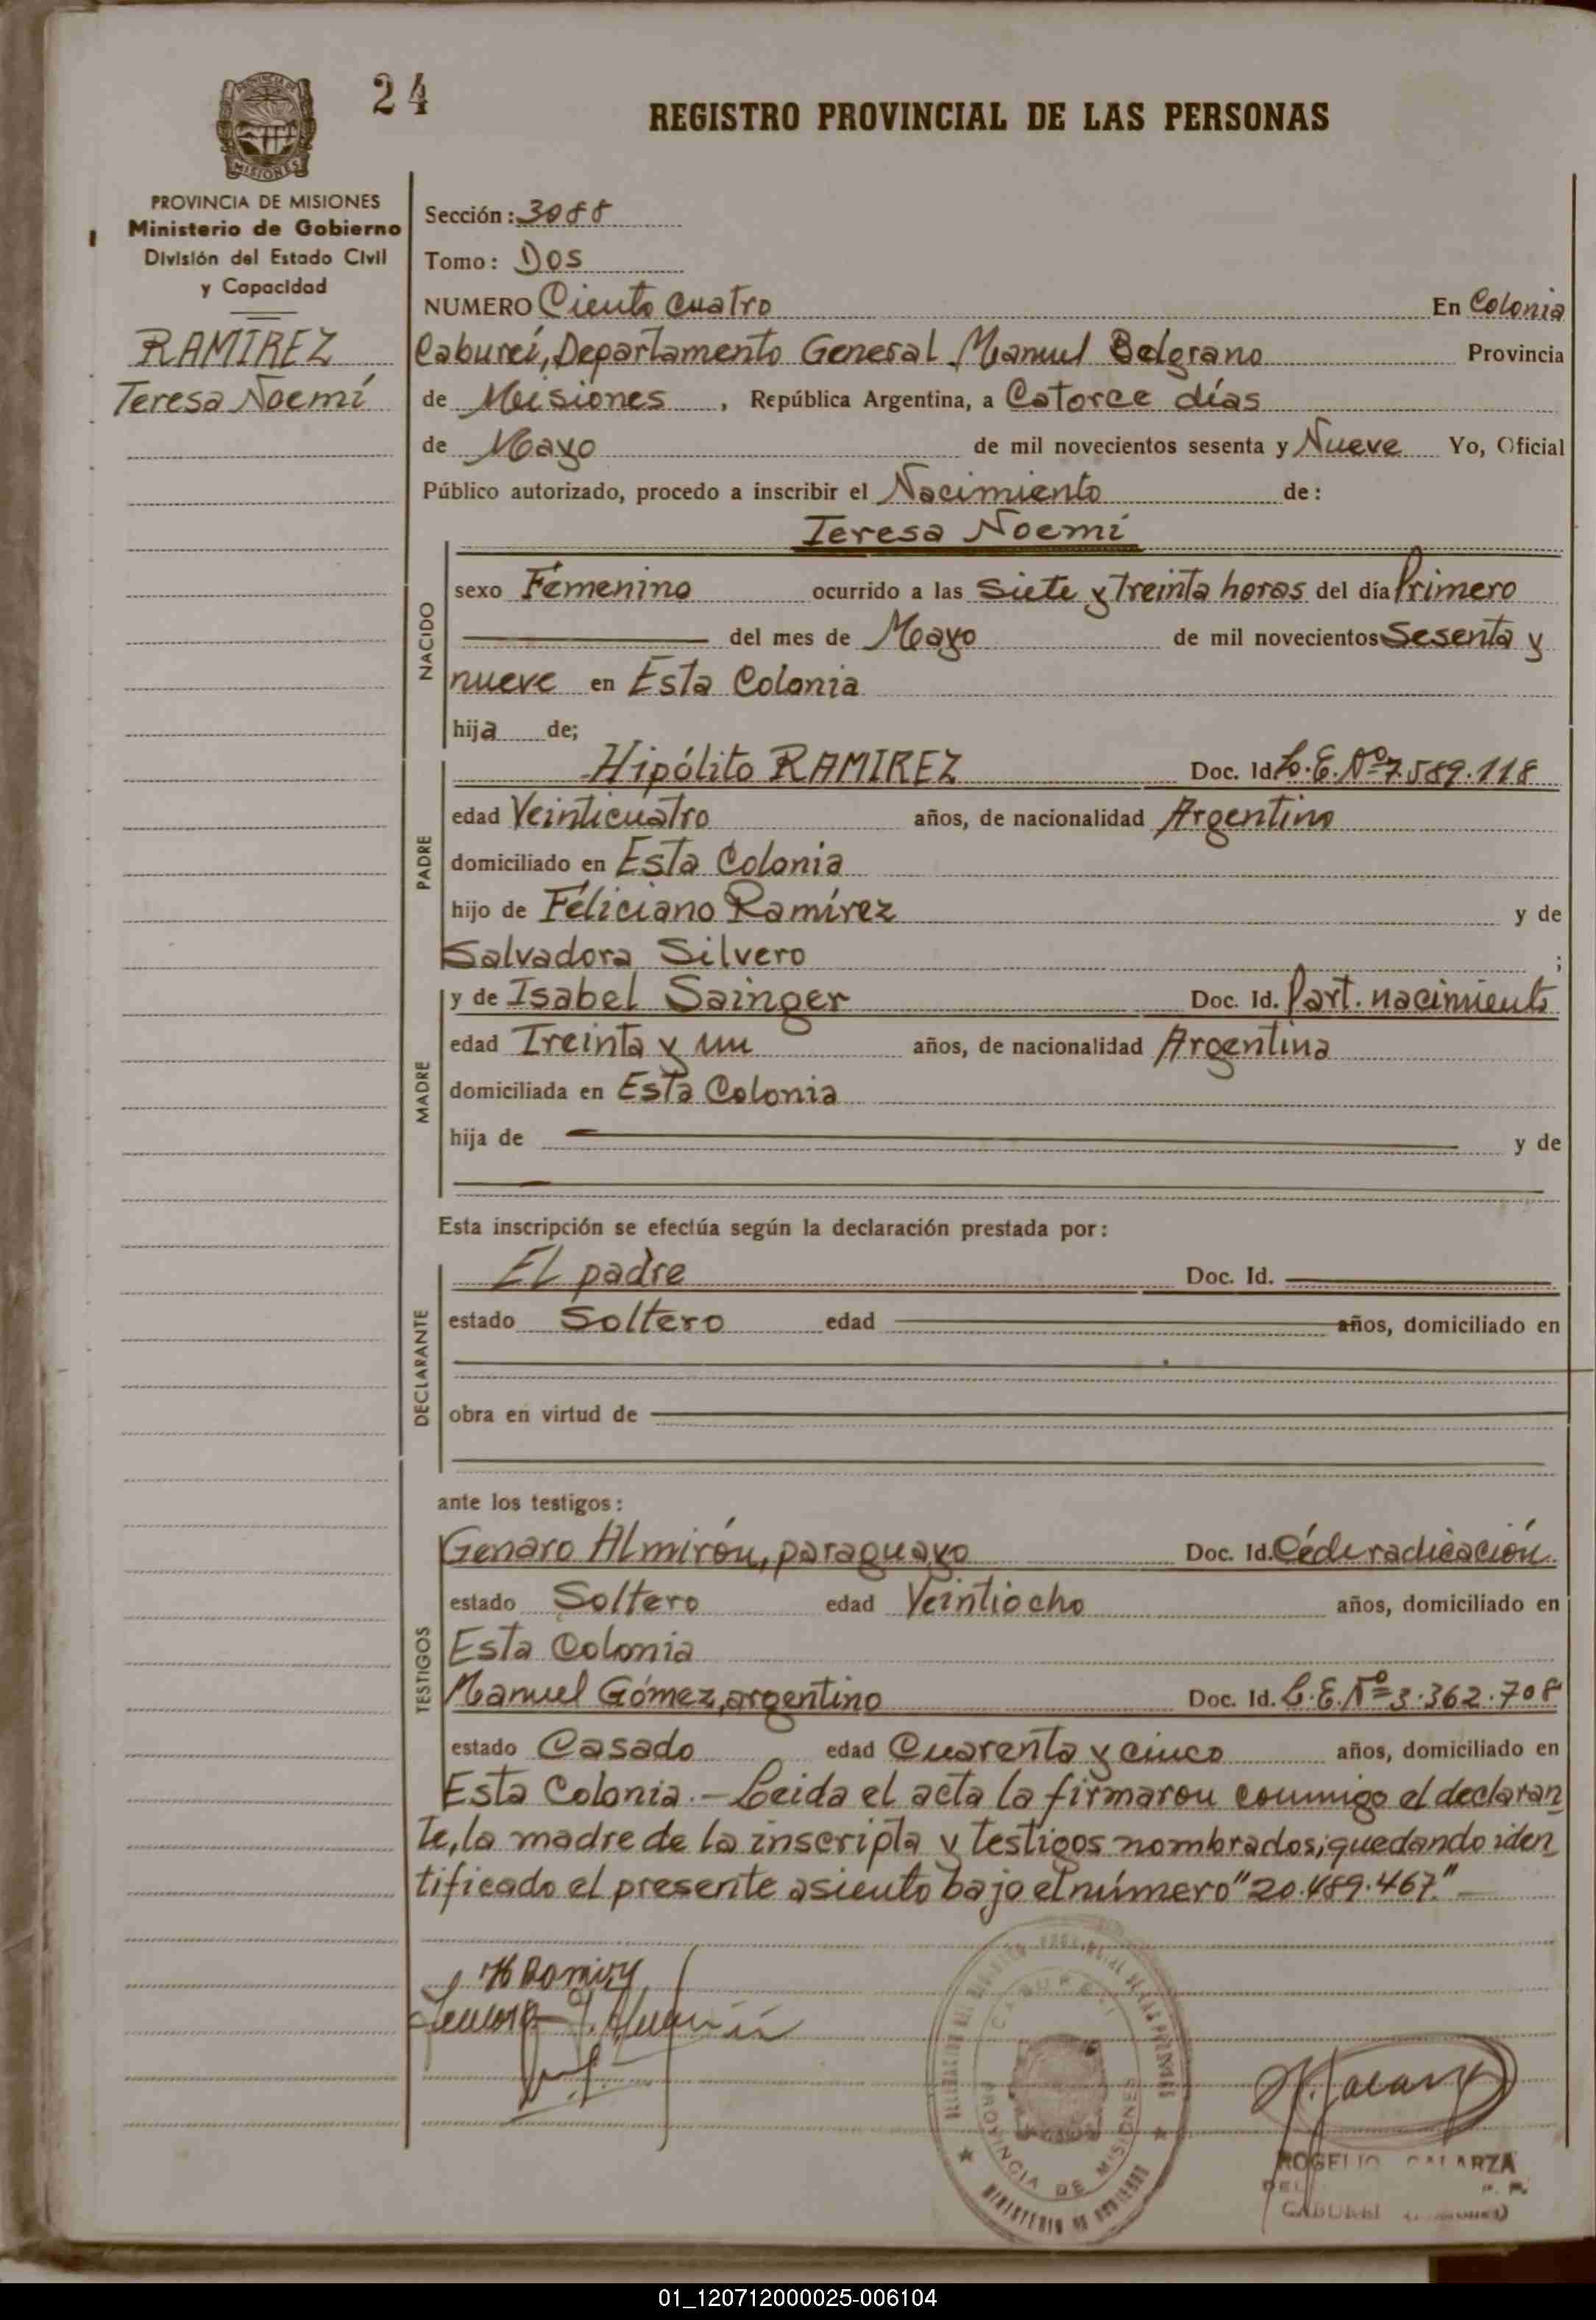 24
REGISTRO PROVINCIAL DE LAS PERSONAS
PROVINCIA DE MISIONES
Ministerio de Gobierno
División del Estado Civil
y Capacidad
RAMIREZ
Teresa Noemí
Sección: 3088
Tomo: Dos
NUMERO Ciento cuatro En Colonia
Cabureí, Departamento General Manuel Belgrano Provincia
de Misiones, República Argentina, a Catorce días
de Mayo de mil novecientos sesenta y Nueve Yo, Oficial
Público autorizado, procedo a inscribir el Nacimiento de:
Teresa Noemí
NACIDO
sexo Femenino ocurrido a las siete y treinta horas del día Primero
del mes de Mayo de mil novecientos Sesenta y
nueve en Esta Colonia
hija de;
PADRE
Hipólito RAMIREZ Doc. Id. L.E.Nº7.589.118
edad Veinticuatro años, de nacionalidad Argentino
domiciliado en Esta Colonia
hijo de Feliciano Ramírez y de
Salvadora Silvero ;
MADRE
y de Isabel Sainger Doc. Id. Part. nacimiento
edad Treinta y un años, de nacionalidad Argentina
domiciliada en Esta Colonia
hija de y de
Esta inscripción se efectúa según la declaración prestada por:
DECLARANTE
El padre Doc. Id.
estado Soltero edad años, domiciliado en
obra en virtud de
ante los testigos:
TESTIGOS
Genaro Almirón, paraguayo Doc. Id. Céd. radicación
estado Soltero edad Veintiocho años, domiciliado en
Esta Colonia
Manuel Gómez, argentino Doc. Id. L.E.Nº3.362.708
estado Casado edad Cuarenta y cinco años, domiciliado en
Esta Colonia.- Leida el acta la firmaron conmigo el declaran
te, la madre de la inscripta y testigos nombrados; quedando iden
tificado el presente asiento bajo el número "20.489.467."
PROVINCIA DE MISIONES
MINISTERIO DE GOBIERNO
ROGELIO GALARZA
01_120712000025-006104